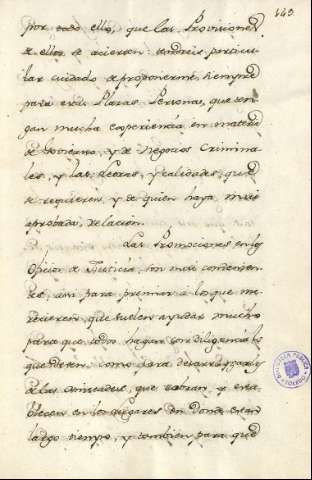 143.
por todo ello, que las Provisiones
de ellos se acierten: tendreis particu-
lar cuidado de proponerme, siempre
para estas Plazas Personas, que ten-
gan mucha experiencia en materia
de Govierno, y de Negocios Crimina-
les, y las letras, y calidades, que
se requieren, y de quien haya mas
aprobada relacion.
Las Promociones en los
Oficios de Justicia, son mui convenien-
tes, assi para premiar à los que me-
recieren, que suelen ayudar mucho
para que todos hagan con diligencia lo
que deven: como para desarraygarlos
de las amistades, que cobran, y esta-
blecen en los lugares en donde estan
largo tiempo, y tambien para que
BIBLIOTECA PUBLICA
TOLEDO